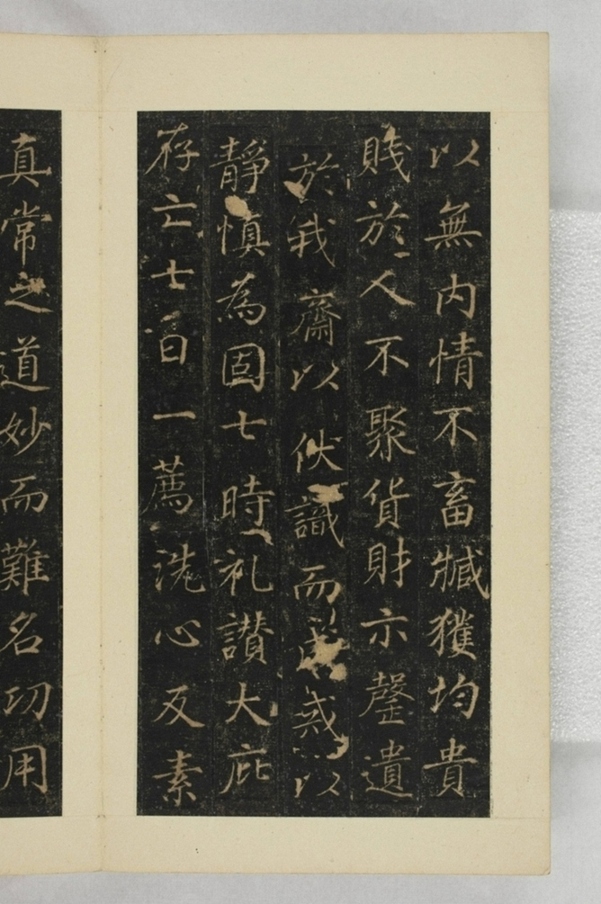 以無内情不畜臧獲均貴
賤於人不聚貨財示罄遺
於我齋以伏識而戒以
静慎為固七時礼讃大庇
存亡七日一薦洗心反素
真常之道妙而難名功用